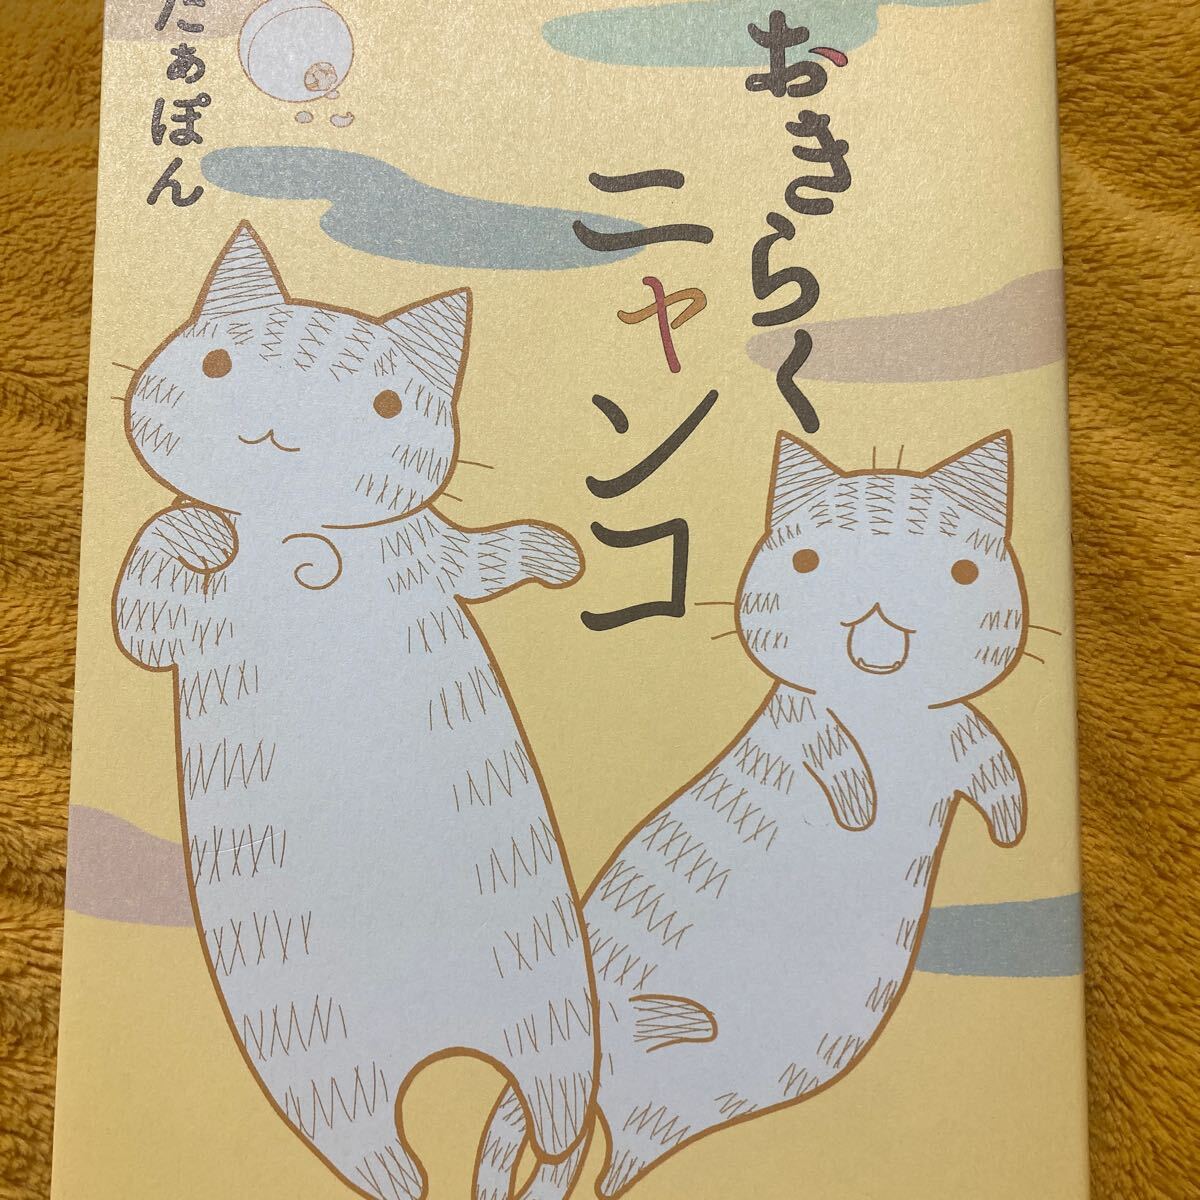 おきらく
ニャンコ
たぁぽん